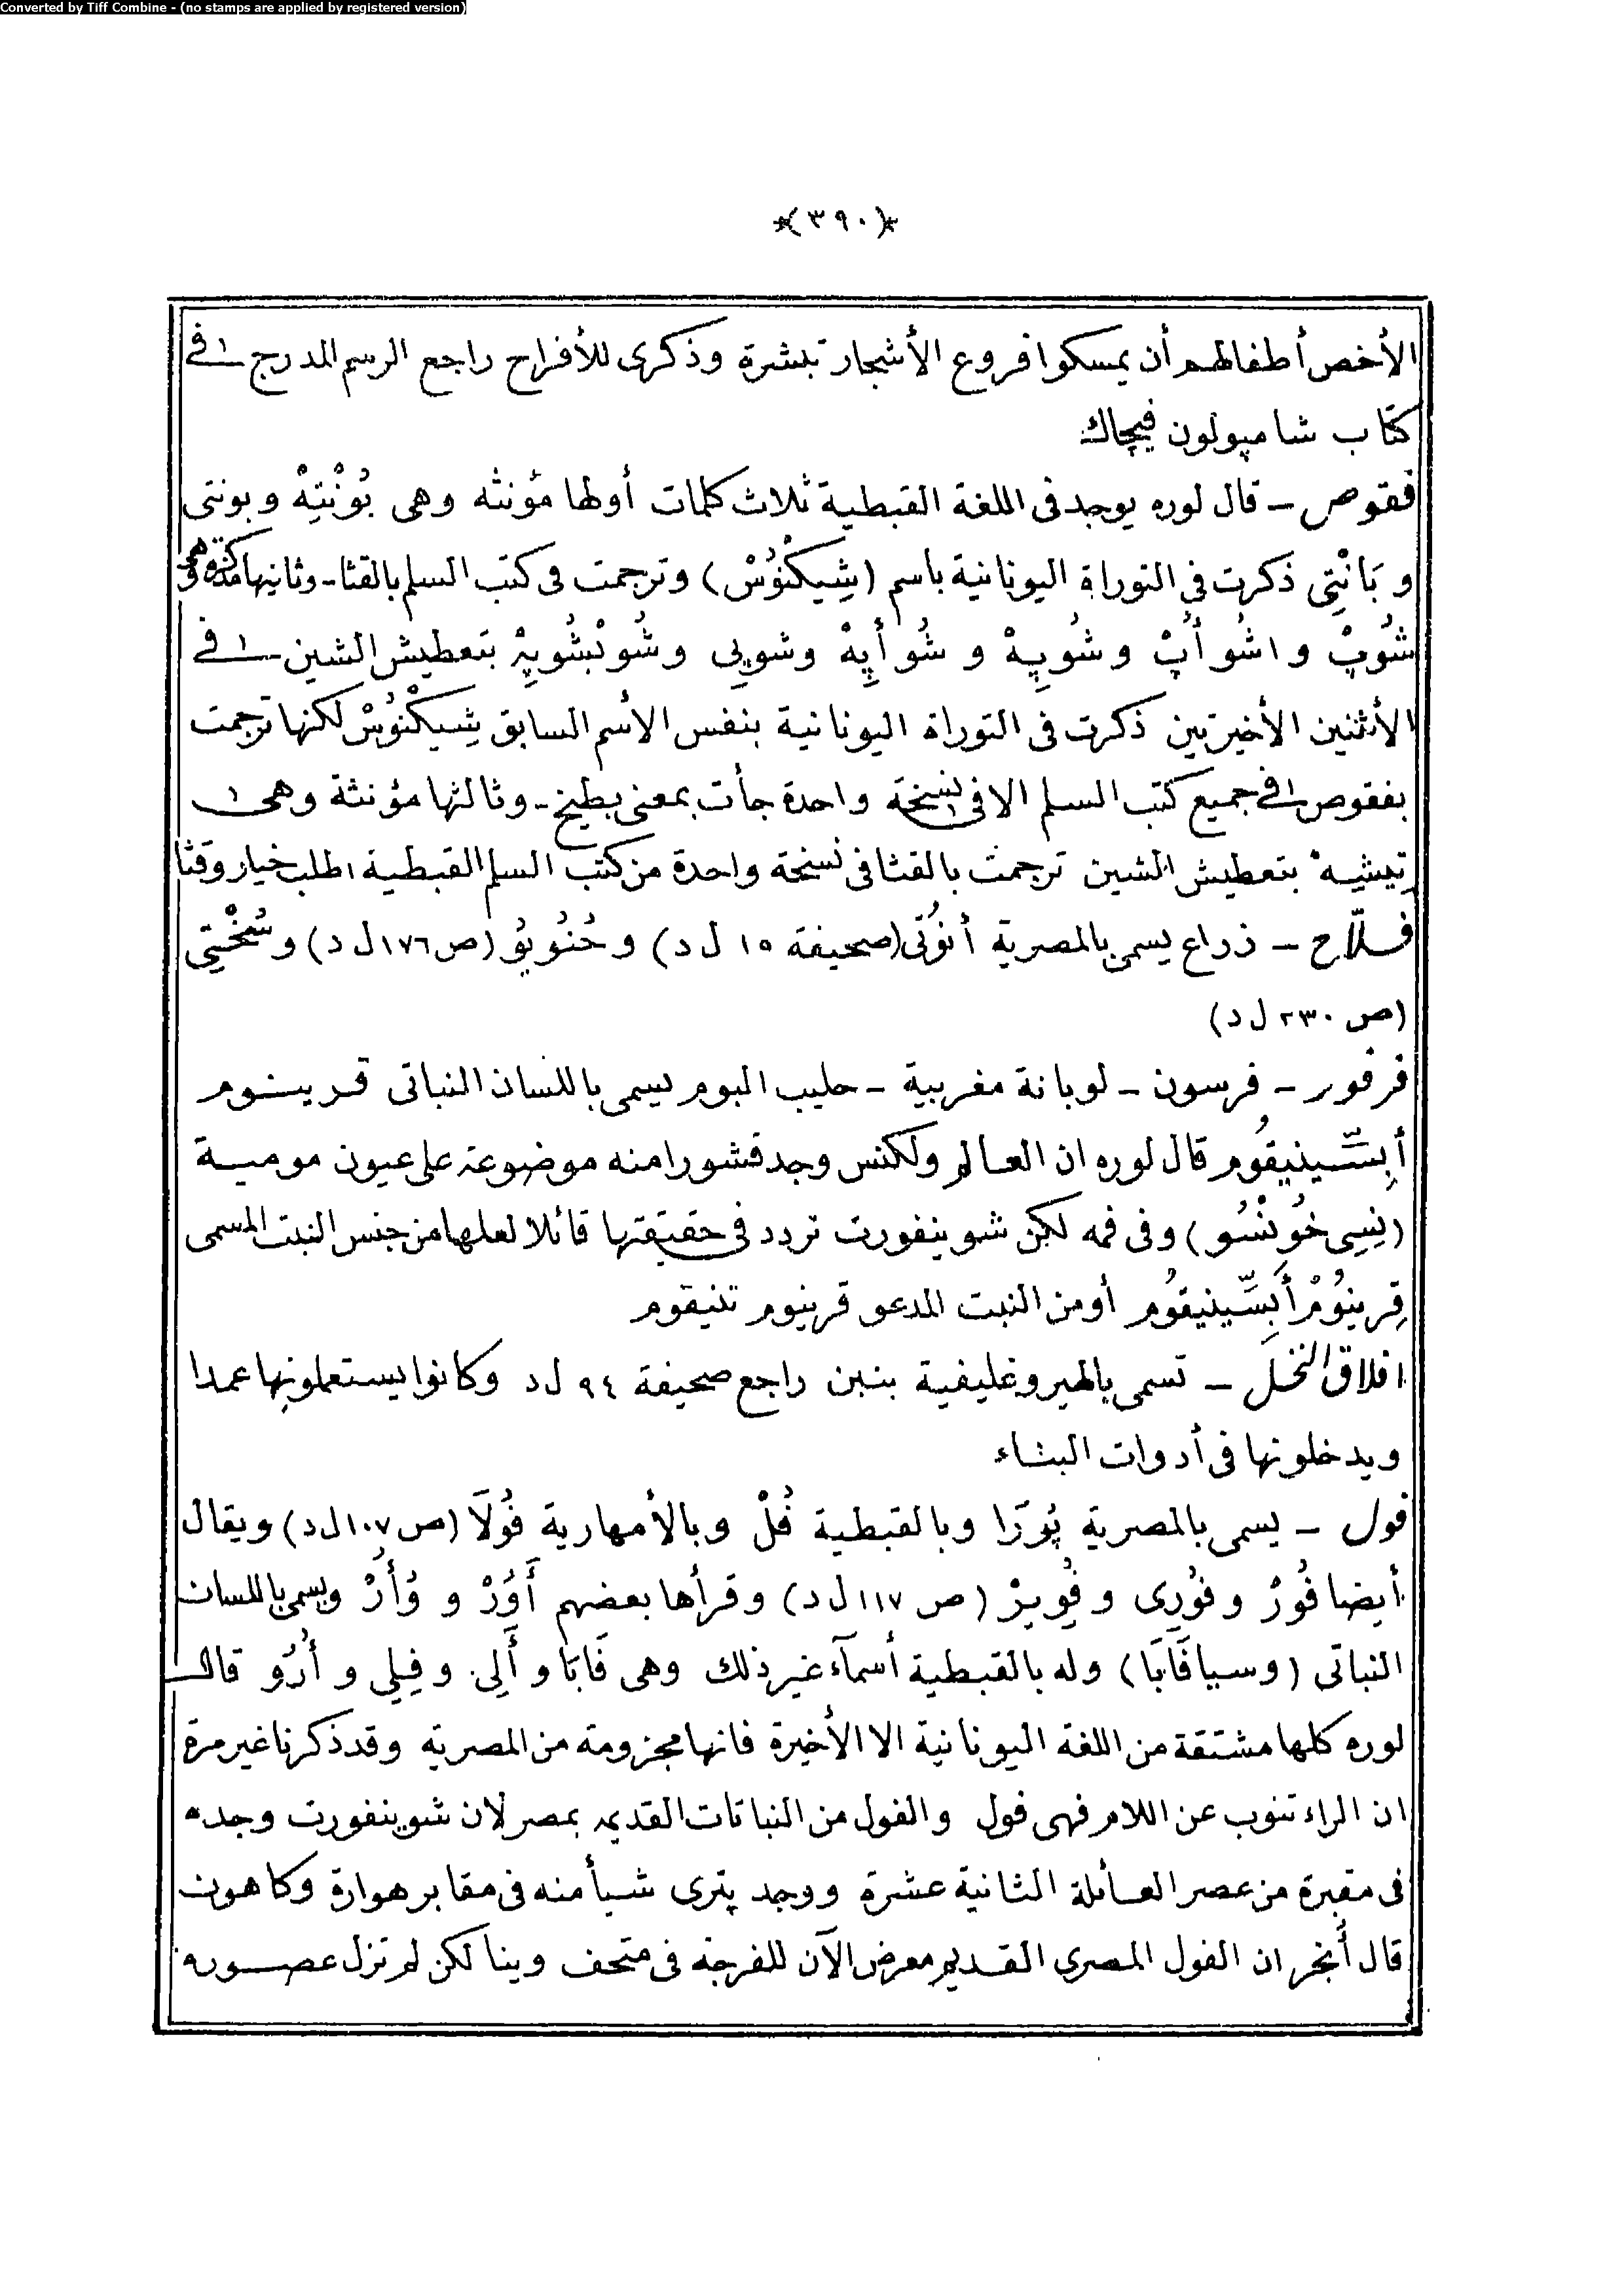 Converted by Tiff Combine - (no stamps are applied by registered version)
*(٣٩٠)*
الأخص أطفالهم أن يمسكوا فروع الأشجار تبشرة وذكرى للأفراح راجع الرسم المدرج فى
كتاب شامپولون فيچاك
فقوص – قال لوره يوجد فى اللغة القبطية ثلاث كلمات أولها مؤنثه وهى بُوْنْتِهْ وبونتى
و بَانْتِى ذكرت فى التوراة اليونانية باسم (شِيكْنُوُسْ) وترجمت فى كتب السلم بالقثا – وثانيها مذكره وهى
شُوپْ و اشُوأَپْ و شُوپِهْ و شُوأَپِهْ وشوپِى وشُونْشُوپِهْ بتعطيش الشين فى
الأثنين الأخيرتين ذكرت فى التوراة اليونانية بنفس الأسم السابق شِيكْنُوُسْ لكنها ترجمت
بفقوص فى جميع كتب السلم الا فى نسخة واحدة جأت بمعنى بطيخ – وثالثها مؤنثة وهى
تِيشيهْ بتعطيش الشين ترجمت بالقثا فى نسخة واحدة من كتب السلم القبطية اطلب خيار وقثا
فلّاح – ذراع يسمى بالمصرية أنوُتى (صحيفة ١٥ ل د) و حُنُوبُو (ص ١٧٦ ل د) و سُخْتِى
(ص ٢٣٠ ل د)
فرفور – فرسون – لوبانة مغربية – حليب البوم يسمى باللسان النباتى قرينوم
أبِسّينيقُوم قال لوره ان العالم ولكنس وجد قشورا منه موضوعة على عيون مومية
(نِسِى خُونْسُو) وفى فمه لكن شوينفورت تردد فى حقيقتها قائلا لعلها من جنس النبت المسمى
قِرينوُمْ أَبِسّينيقُوم أو من النبت المدعو قرينوم تنيقوم
افلاق النخل – تسمى بالهيروغليفية بنبن راجع صحيفة ٩٤ ل د وكانوا يستعملونها عمدا
ويدخلونها فى أدوات البناء
فول – يسمى بالمصرية پُورَا وبالقبطية فُلْ وبالأمهارية فُولَا (ص ١٠٧ ل د) ويقال
أيضا فُورْ وفوُرِى و فُوِيرْ (ص ١١٧ ل د) وقرأها بعضهم أَوَرْ و وُأَرْ ويسمى باللسان
النباتى (وسيا فَابَا) وله بالقبطية أسمآء غير ذلك وهى فَابَا و أَلِى و فِلِى و أُرُو قال
لوره كلها مشتقة من اللغة اليونانية الا الأخيرة فانها مجزومة من المصرية وقد ذكرنا غير مرة
ان الراء تنوب عن اللام فهى فول والفول من النباتات القديمه بمصر لان شوينفورت وجده
فى مقبرة من عصر العائلة الثانية عشرة ووجد پترى شيأ منه فى مقابر هوارة وكاهون
قال أُنجر ان الفول المصرى القديم معرض الآن للفرجة فى متحف وينا لكن لم تزل عصوره